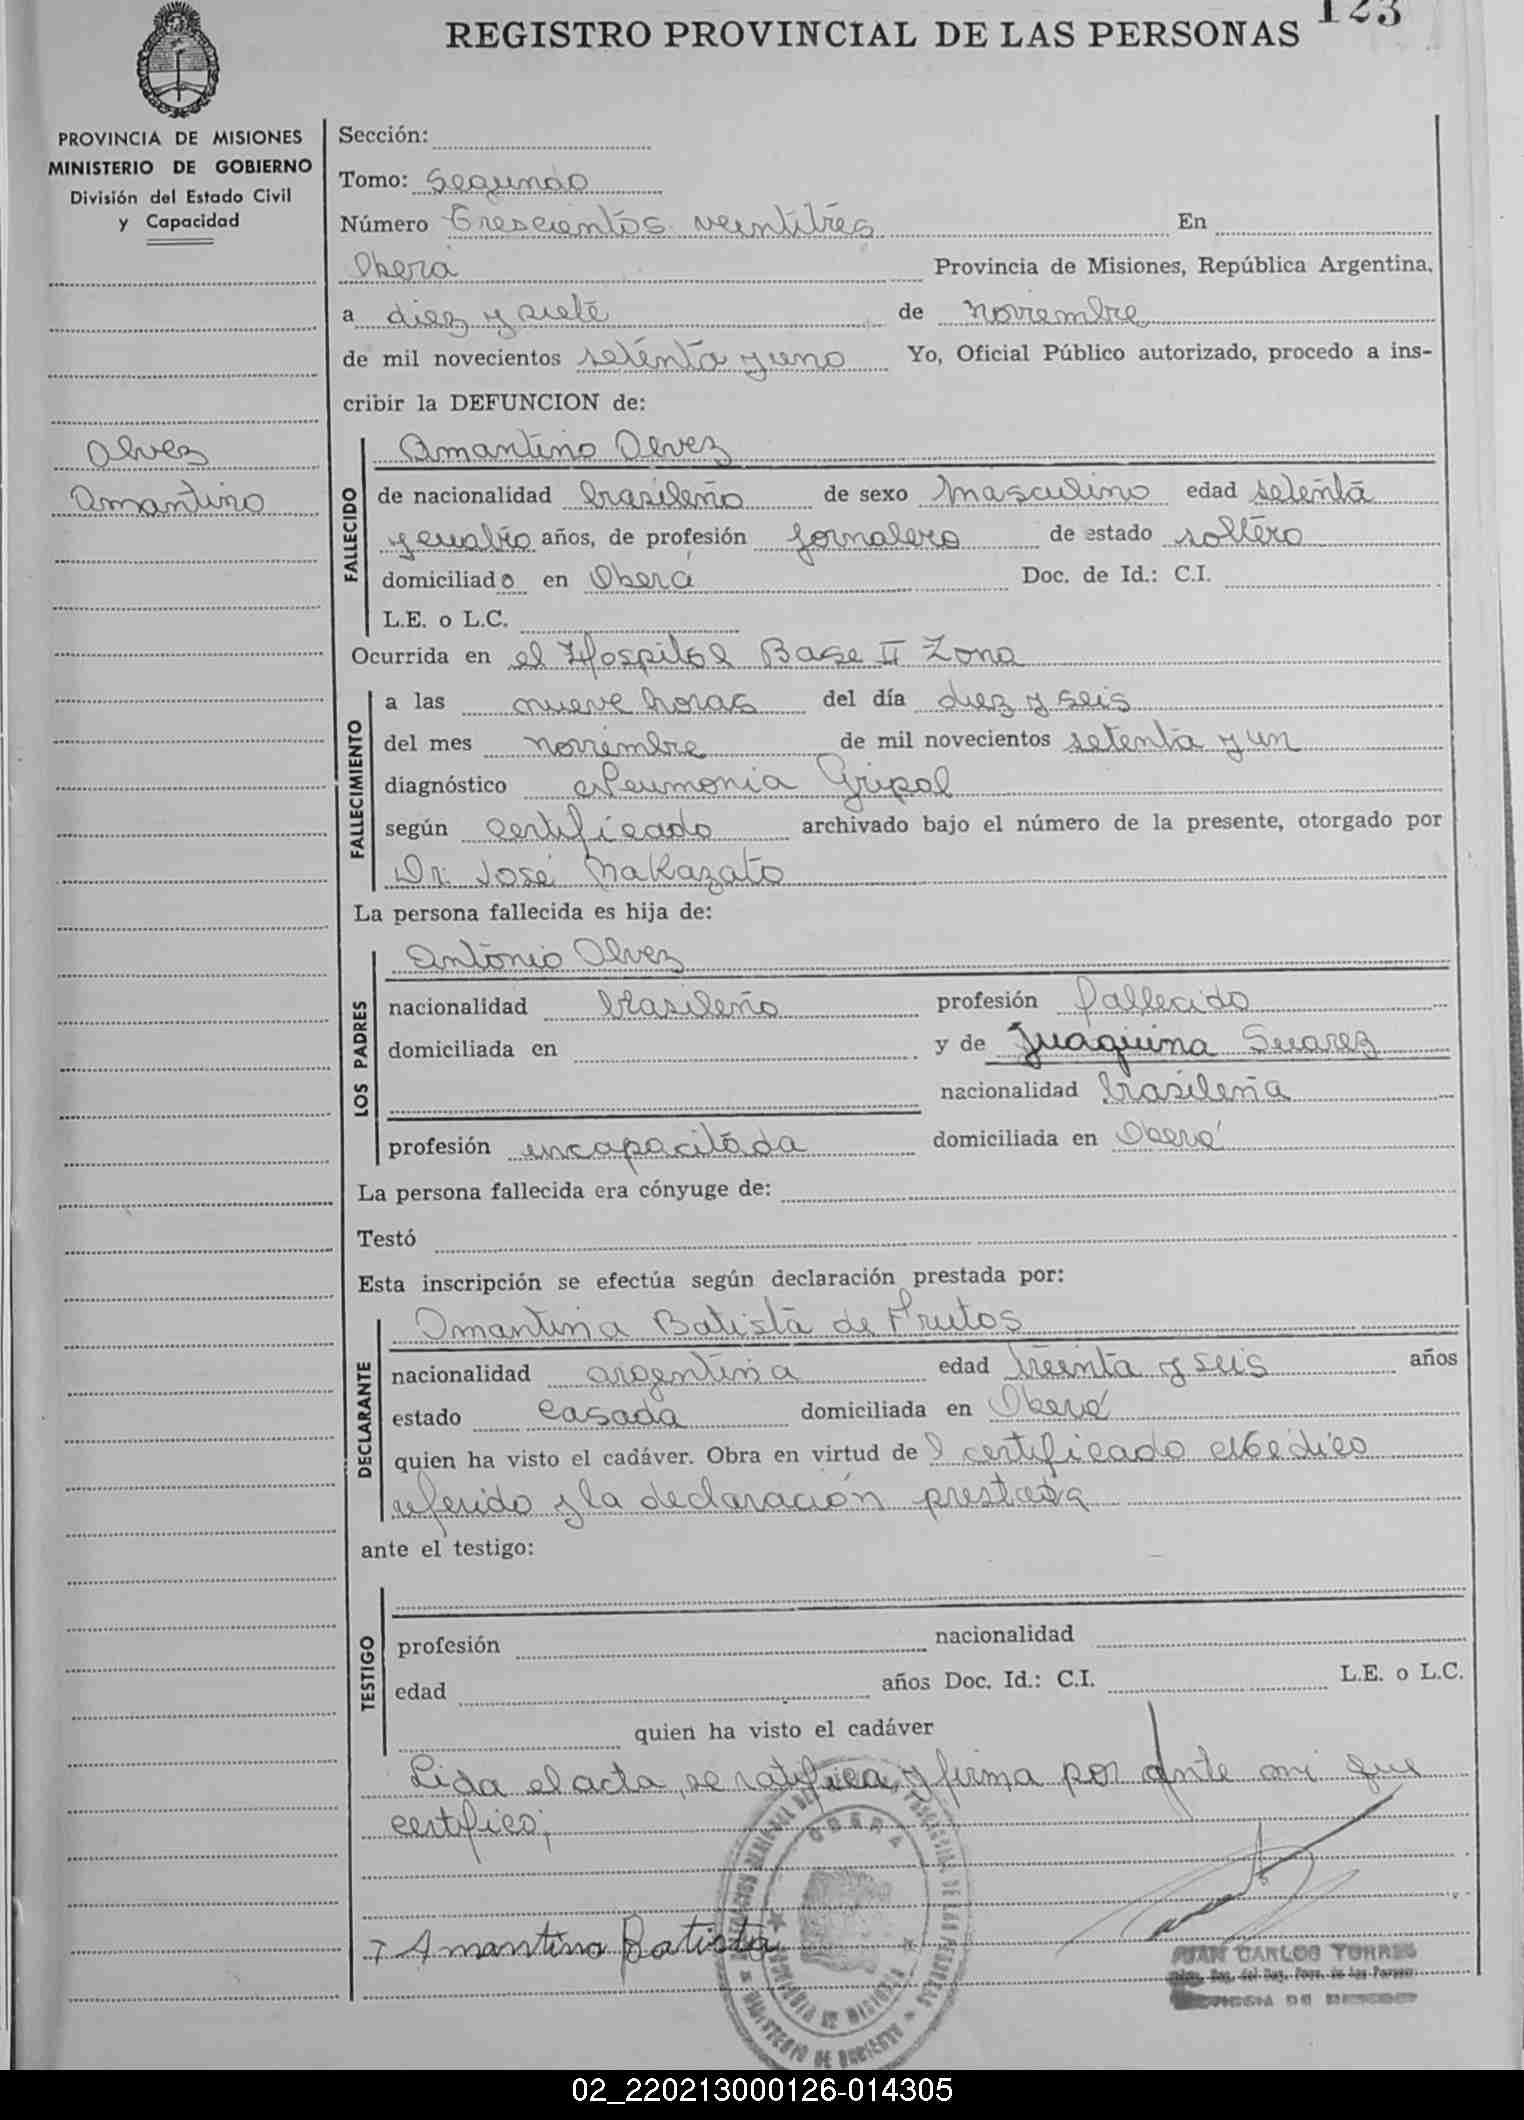 REGISTRO PROVINCIAL DE LAS PERSONAS 123
PROVINCIA DE MISIONES
MINISTERIO DE GOBIERNO
División del Estado Civil
y Capacidad
Alvez
Amantino
Sección:
Tomo: Segundo
Número Trescientos veintitrés En
Oberá Provincia de Misiones, República Argentina,
a diez y siete de noviembre
de mil novecientos setenta y uno Yo, Oficial Público autorizado, procedo a ins-
cribir la DEFUNCION de:
FALLECIDO
Amantino Alvez
de nacionalidad brasileño de sexo masculino edad setenta
y cuatro años, de profesión jornalero de estado soltero
domiciliado en Oberá Doc. de Id.: C.I.
L.E. o L.C.
Ocurrida en el Hospital Base II Zona
FALLECIMIENTO
a las nueve horas del día diez y seis
del mes noviembre de mil novecientos setenta y un
diagnóstico Neumonia Gripal
según certificado archivado bajo el número de la presente, otorgado por
Dr. José Nakazato
La persona fallecida es hija de:
LOS PADRES
Antonio Alvez
nacionalidad brasileño profesión fallecido
domiciliada en y de Juaquina Suarez
nacionalidad brasileña
profesión incapacitada domiciliada en Oberá
La persona fallecida era cónyuge de:
Testó
Esta inscripción se efectúa según declaración prestada por:
DECLARANTE
Amantina Batista de Frutos
nacionalidad argentina edad treinta y seis años
estado casada domiciliada en Oberá
quien ha visto el cadáver. Obra en virtud de l certificado Medico
referido y la declaración prestada
ante el testigo:
TESTIGO
profesión nacionalidad
edad años Doc. Id.: C.I. L.E. o L.C.
quien ha visto el cadáver
Lida el acta, se ratifica y firma por ante mi que
certifico;
Amantina Batista
OBERA
PROVINCIA DE MISIONES
MINISTERIO DE GOBIERNO
JUAN CARLOS TORRES
02_220213000126-014305